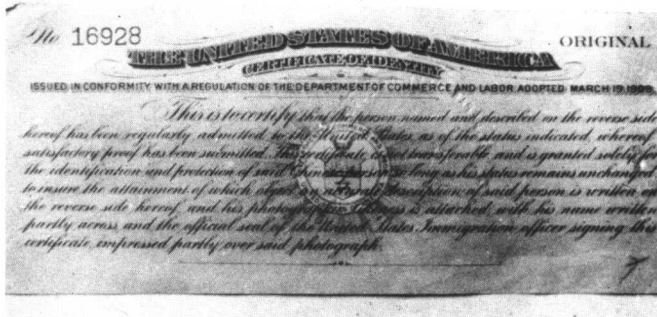 No. 16928
ORIGINAL
THE UNITED STATES OF AMERICA
CERTIFICATE OF IDENTITY
ISSUED IN CONFORMITY WITH A REGULATION OF THE DEPARTMENT OF COMMERCE AND LABOR ADOPTED MARCH 19, 1909,
This is to certify that the person named and described on the reverse side
hereof has been regularly admitted to the United States, as of the status indicated, whereof
satisfactory proof has been submitted. This certificate is not transferable, and is granted solely for
the identification and protection of said Chinese person so long as his status remains unchanged;
to insure the attainment of which object an accurate description of said person is written on
the reverse side hereof, and his photographic likeness is attached, with his name written
partly across, and the official seal of the United States Immigration officer signing this
certificate, impressed partly over said photograph.